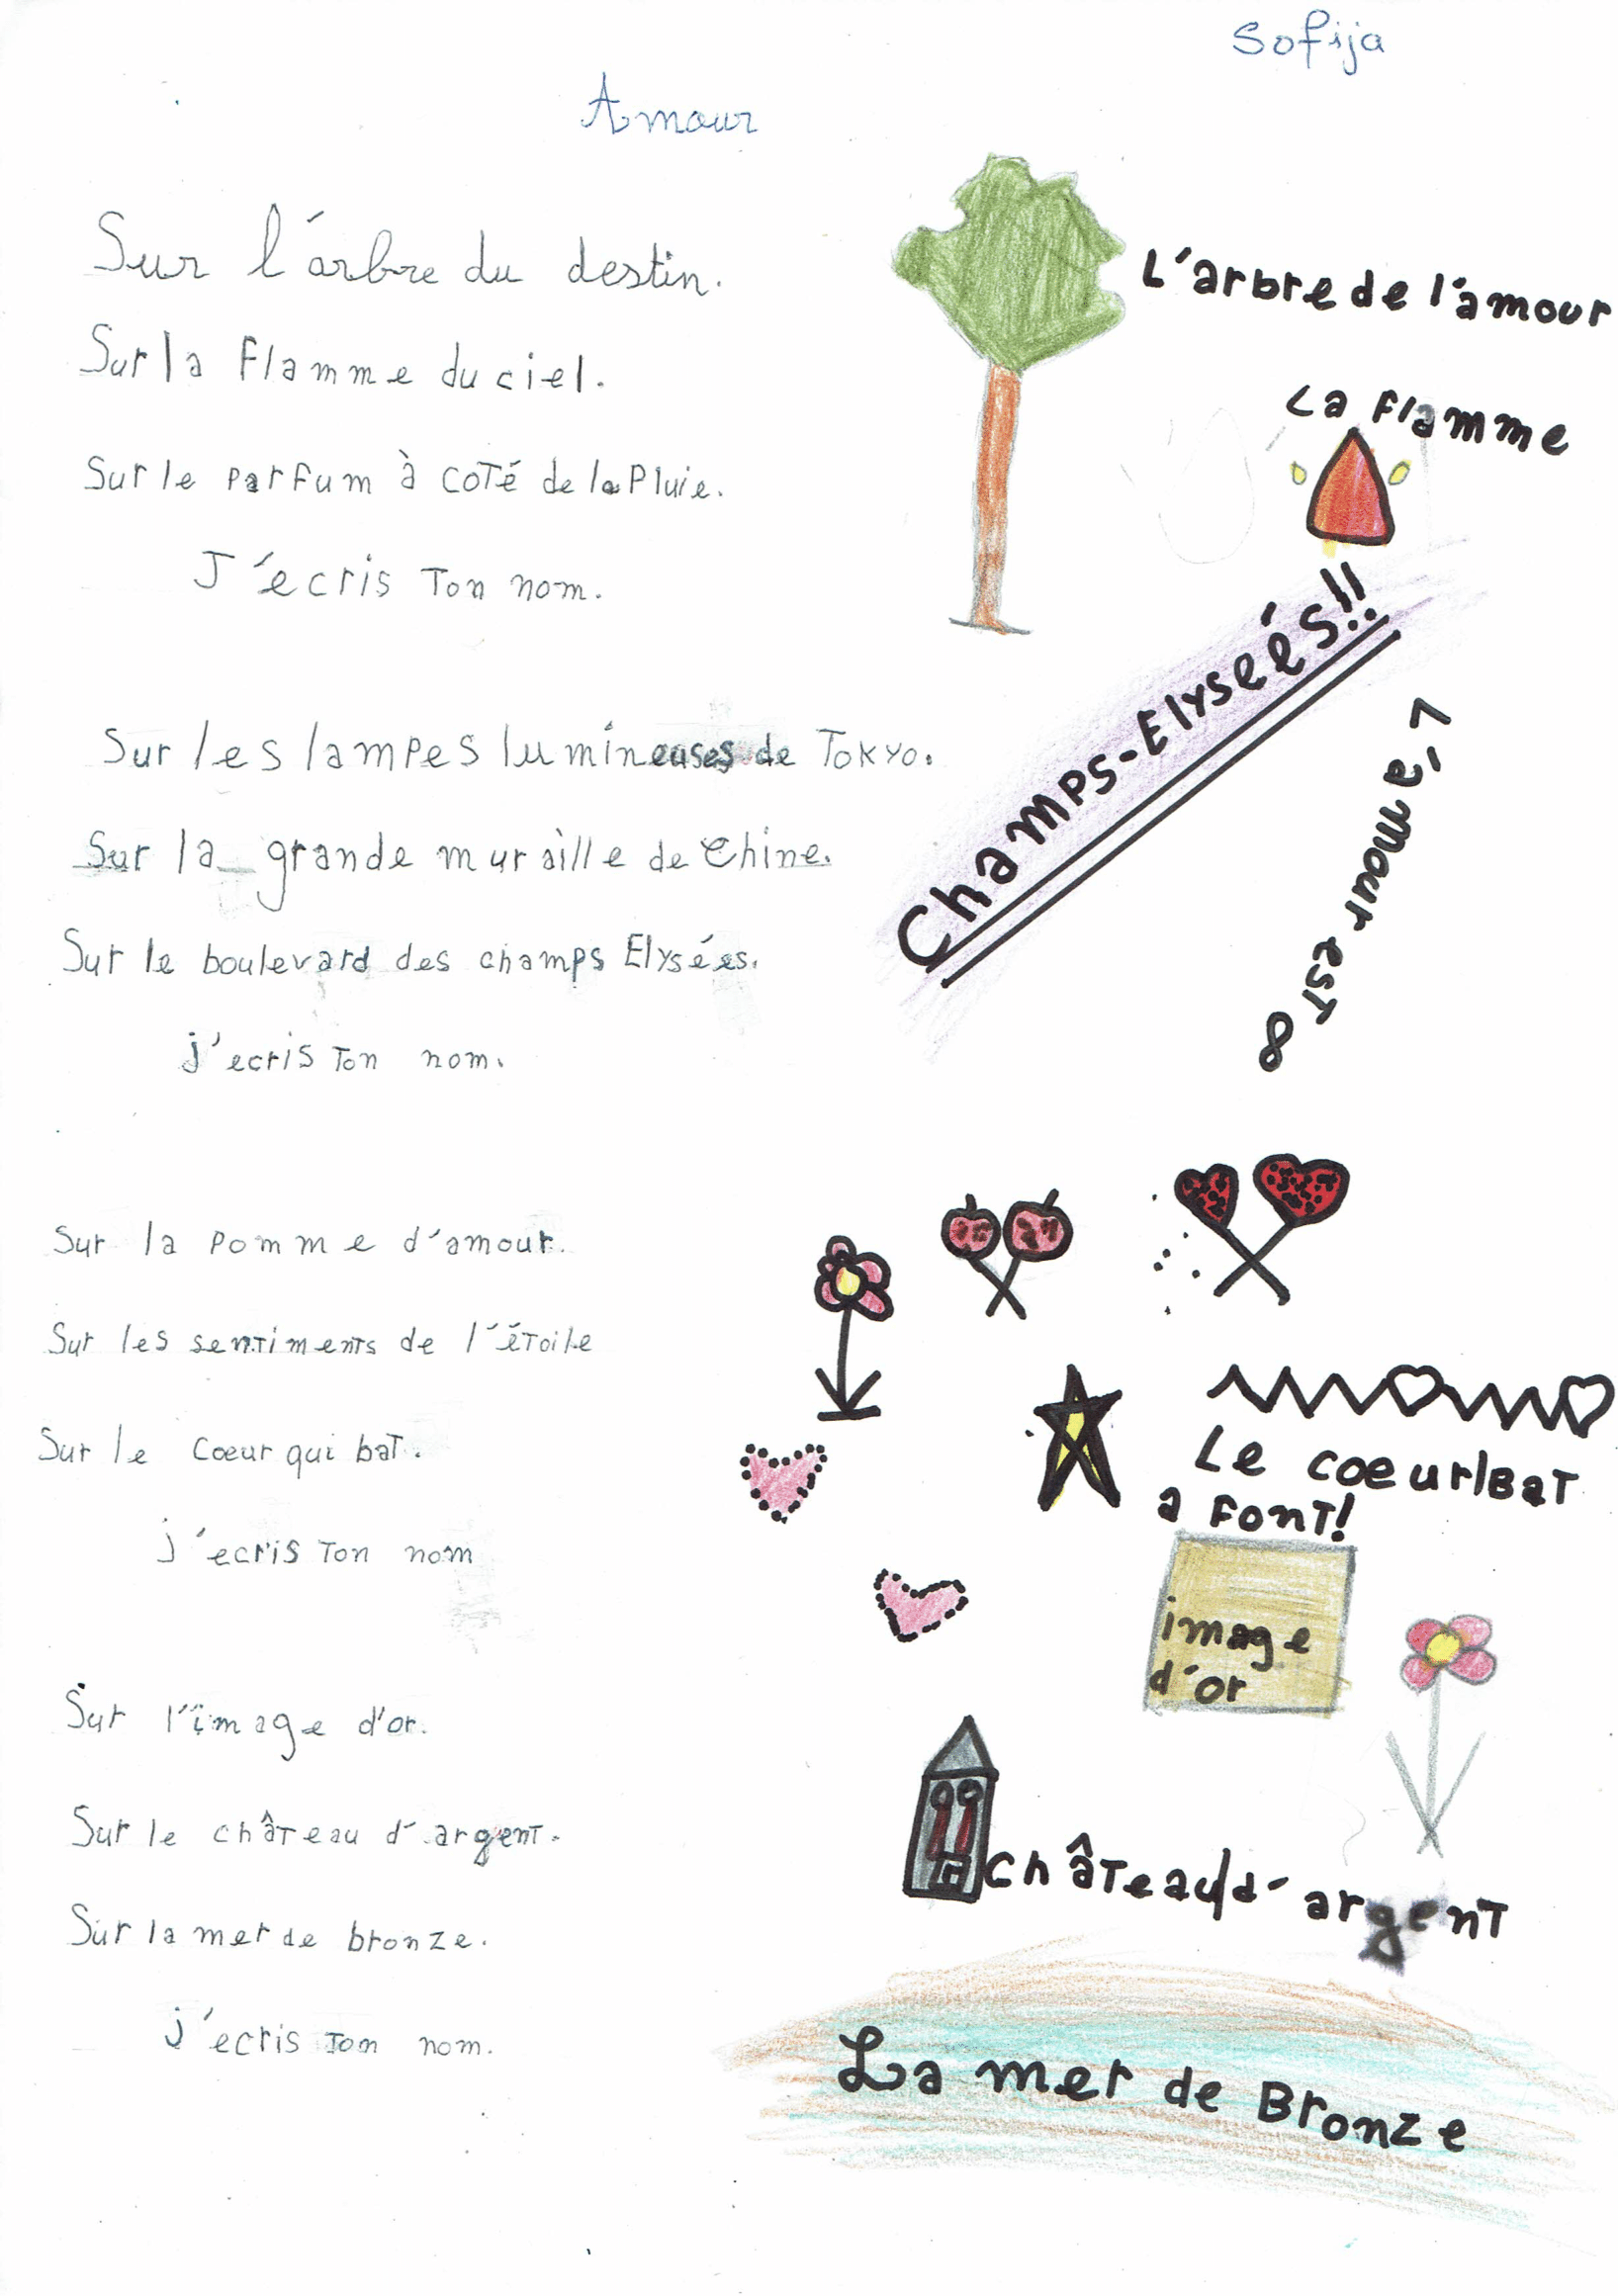 Sofija
Amour
Sur l'arbre du destin.
Sur la Flamme du ciel.
Sur le parfum à coté de la Pluie.
J'ecris Ton nom.
Sur les lampes lumineuses de Tokyo.
Sur la grande muraille de Chine.
Sur le boulevard des champs Elysées.
j'ecris Ton nom.
Sur la pomme d'amour.
Sur les sentiments de l'étoile
Sur le coeur qui bat.
j'ecris Ton nom
Sur l'image d'or.
Sur le château d'argent.
Sur la mer de bronze.
j'ecris Ton nom.
L'arbre de l'amour
La Flamme
Champs-Elyseés!!
L'amour est ∞
Le coeur/Bat
a Font!
image
d'or
Château/d'argent
La mer de Bronze